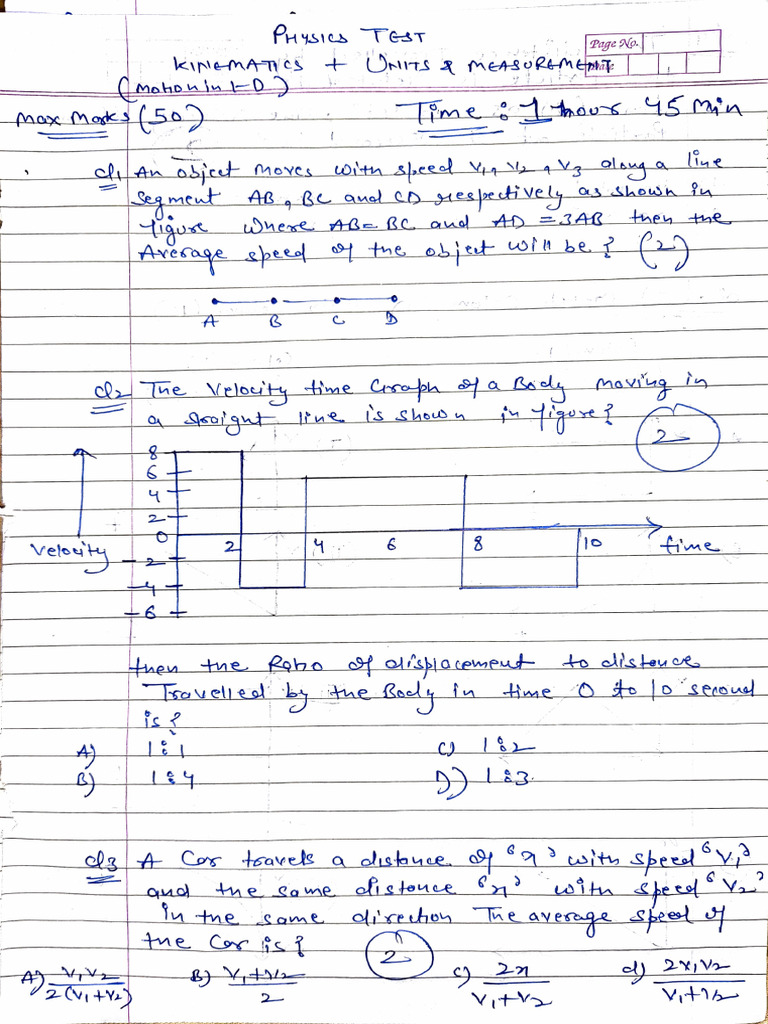 PHYSICS TEST
Page No.
KINEMATICS + UNITS & MEASUREMENT
(Motion in 1-D)
Max Marks (50) Time : 1 hour 45 Min
Q1 An object moves with speed v1, v2, v3 along a line
segment AB, BC and CD respectively as shown in
figure where AB=BC and AD = 3AB then the
Average speed of the object will be? (2)
A B C D
Q2 The Velocity time Graph of a Body moving in
a straight line is shown in figure?
2
8
6
4
2
0
2 4 6 8 10 time
Velocity
-2
-4
-6
then the Ratio of displacement to distance
Travelled by the Body in time 0 to 10 second
is?
A) 1:1 C) 1:2
B) 1:4 D) 1:3
Q3 A Car travels a distance of 'x' with speed 'V1'
and the same distance 'x' with speed 'V2'
in the same direction The average speed of
the Car is? 2
A) V1V2/2(V1+V2) B) V1+V2/2 C) 2x/V1+V2 d) 2x1V2/V1+V2